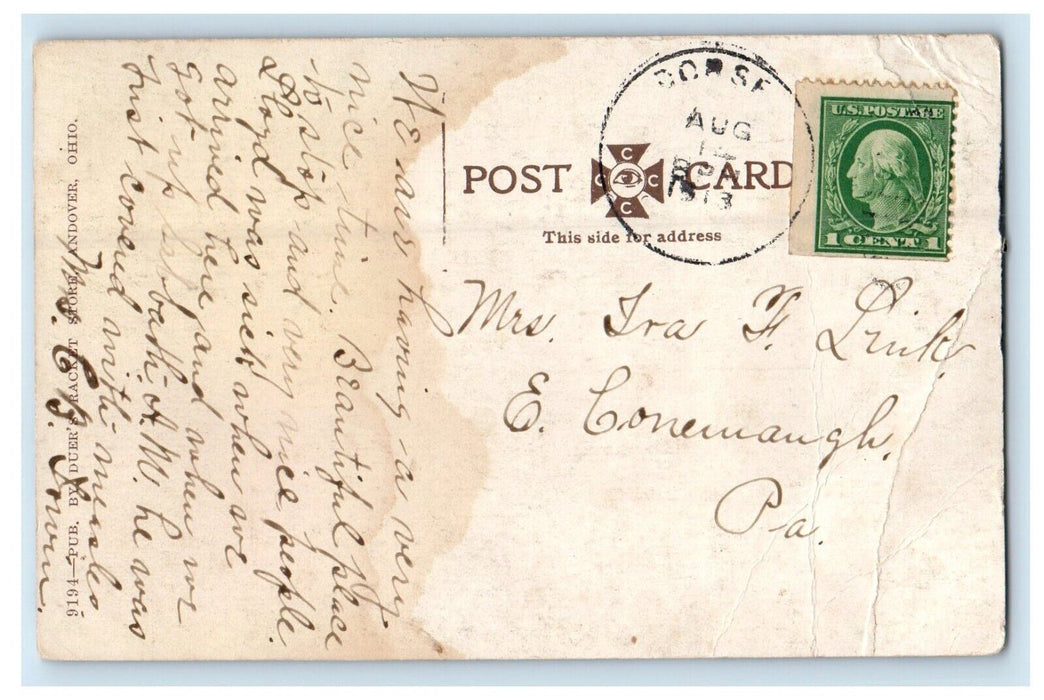 We are having a very
nice time. Beautiful place
to stop and very nice people.
Lloyd was sick when we
arrived here, and when we
got up Sabbath A.M. he was
just covered with measles
Mrs. C. B.
9194—PUB. BY DUER'S RACKET STORE, ANDOVER, OHIO.
POST CARD
C
C C
C
This side for address
AUG
1913
U.S. POSTAGE
1 CENT 1
Mrs. Ira F.
E. Conemaugh,
Pa.